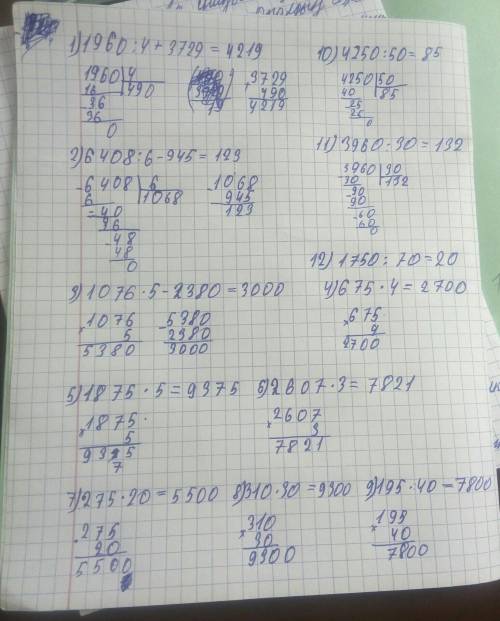 1) 1960 : 4 + 3729 = 4219
1960 | 4
16 | 490
- 36
36
0
+ 3729
490
4219
10) 4250 : 50 = 85
4250 | 50
40 | 85
25
25
0
2) 6408 : 6 - 945 = 123
- 6408 | 6
6 | 1068
- 40
36
- 48
48
0
- 1068
945
123
11) 3960 : 30 = 132
3960 | 30
- 30 | 132
- 90
90
- 60
60
0
12) 1750 : 70 = 20
3) 1076 · 5 - 2380 = 3000
× 1076
5
5380
- 5380
2380
3000
4) 675 · 4 = 2700
× 675
4
2700
5) 1875 · 5 = 9375
× 1875
5
6) 2607 · 3 = 7821
× 2607
3
7821
7) 275 · 20 = 5500
× 275
20
5500
8) 310 · 30 = 9300
× 310
30
9300
9) 195 · 40 = 7800
× 195
40
7800